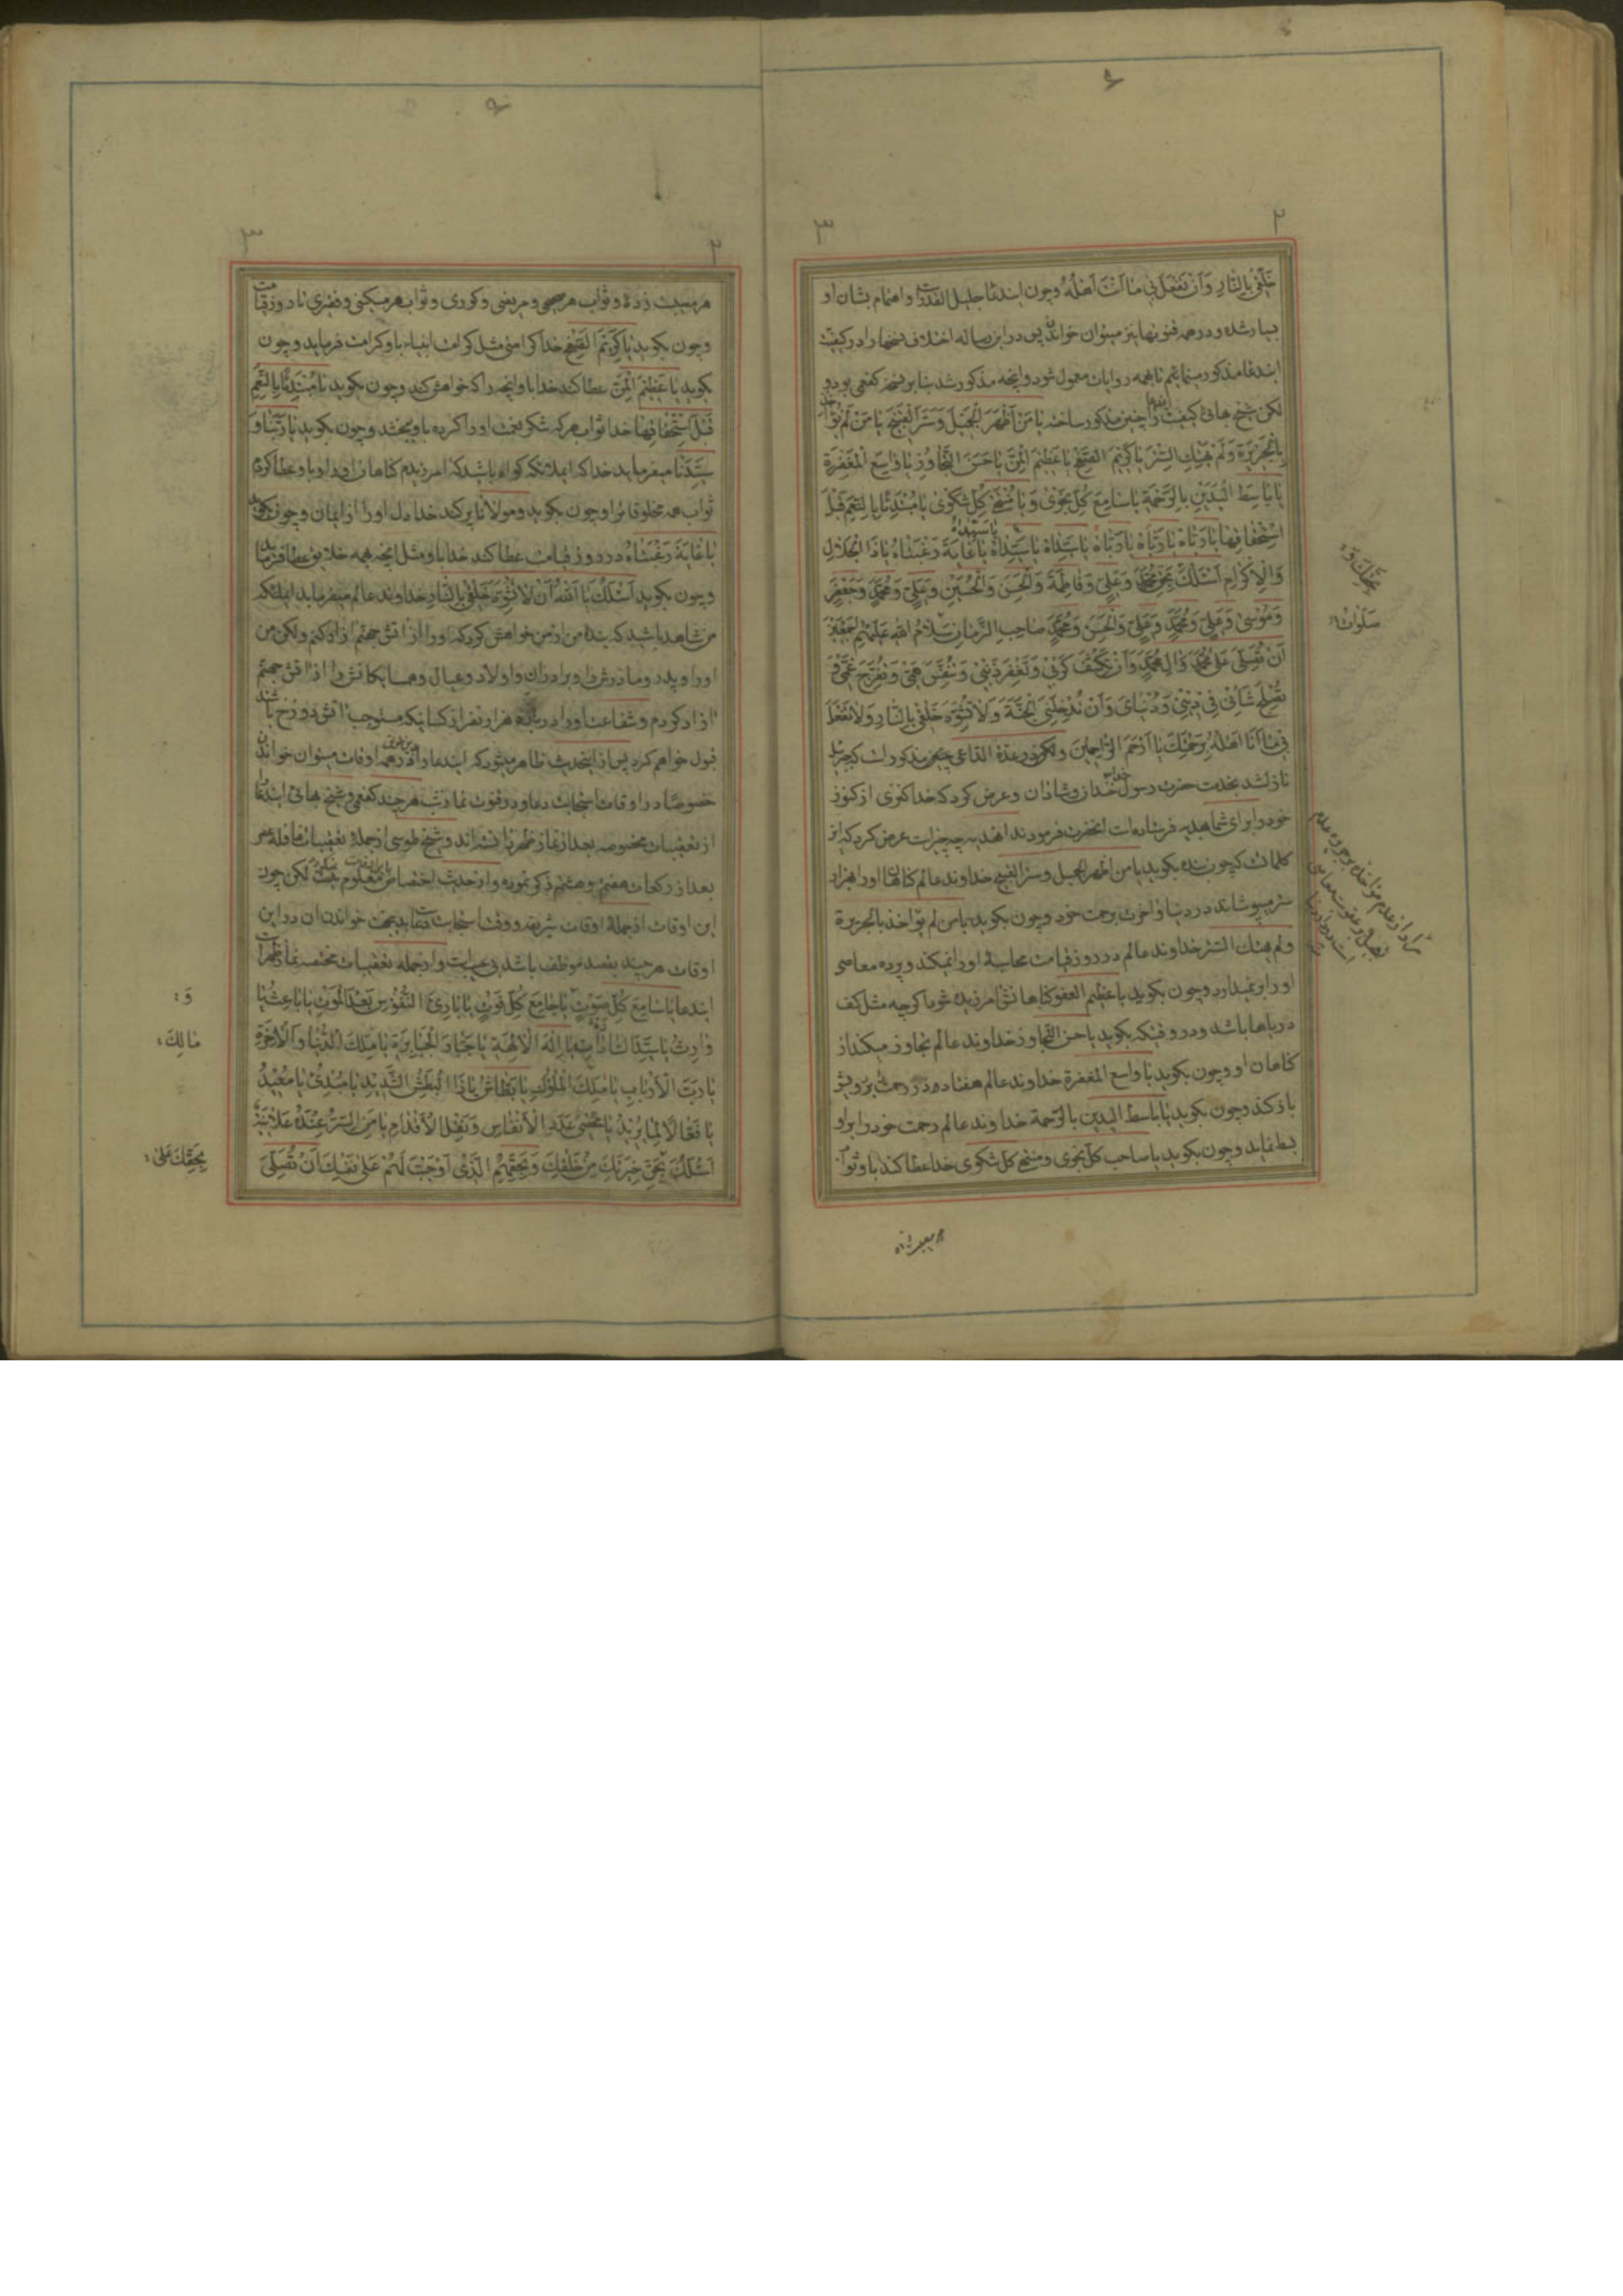 خَلْقی بِالنَّارِ وَاَنْ تَفْعَلَ بی مٰا اَنْتَ اَهْلُهُ وچون ایندعا جلیل القدر است واهتمام بشان او
بسیار شده ودر همه قنوتها نیز میتوان خواند پس در این رساله اختلاف نسخها را در کیفیت
ایندعا مذکور مینمایم تا بهمه روایات معمول شود وانچه مذکور شد بنا بر نسخه کفعمی بود و
لکن شیخ بهائی کیفیت را چنین مذکور ساخته یٰا مَنْ اَظْهَرَ الْجَمیلَ وَسَتَرَ الْقَبیحَ یٰا مَنْ لَمْ یُؤٰاخِذْ
بِالْجَریرَةِ وَلَمْ یَهْتِکِ السِّتْرَ یٰا کَریمَ الصَّفْحِ یٰا عَظیمَ الْمَنِّ یٰا حَسَنَ التَّجٰاوُزِ یٰا وٰاسِعَ الْمَغْفِرَةِ
یٰا بٰاسِطَ الْیَدَیْنِ بِالرَّحْمَةِ یٰا سٰامِعَ کُلِّ نَجْوٰی وَیٰا مُنْتَهٰی کُلِّ شَکْوٰی یٰا مُبْتَدِئًا بِالنِّعَمِ قَبْلَ
اسْتِحْقٰاقِهٰا یٰا رَبّٰاهُ یٰا رَبّٰاهُ یٰا رَبّٰاهُ یٰا سَیِّدٰاهُ یٰا سَیِّدٰاهُ یٰا سَیِّدٰاهُ یٰا غٰایَةَ رَغْبَتٰاهُ یٰا ذَا الْجَلٰالِ
وَالْاِکْرٰامِ اَسْئَلُکَ بِحَقِّ مُحَمَّدٍ وَعَلِیٍّ وَفٰاطِمَةَ وَالْحَسَنِ وَالْحُسَیْنِ وَعَلِیٍّ وَمُحَمَّدٍ وَجَعْفَرٍ
وَمُوسٰی وَعَلِیٍّ وَمُحَمَّدٍ وَعَلِیٍّ وَالْحَسَنِ وَمُحَمَّدٍ صٰاحِبِ الزَّمٰانِ سَلٰامُ اللّٰهِ عَلَیْهِمْ اَجْمَعینَ
اَنْ تُصَلِّیَ عَلٰی مُحَمَّدٍ وَاٰلِ مُحَمَّدٍ وَاَنْ تَکْشِفَ کَرْبی وَتَغْفِرَ ذَنْبی وَتُنَفِّسَ هَمّی وَتُفَرِّجَ غَمّی وَ
تُصْلِحَ شَأنی فی دینی وَدُنْیٰایَ وَاَنْ تُدْخِلَنِی الْجَنَّةَ وَلٰا تُشَوِّهَ خَلْقی بِالنَّارِ وَلٰا تَفْعَلْ
بی مٰا اَنَا اَهْلُهُ بِرَحْمَتِکَ یٰا اَرْحَمَ الرّٰاحِمینَ ولکن در عدة الداعی چنین مذکور است که جبرئیل
نازل شد بخدمت حضرت رسول خندان وشادان وعرض کرد که خدا کنزی از کنوز
خود را برای شما هدیه فرستاده است انحضرت فرمودند اهدیه چه چیز است عرض کرد که از
کلماتست که چون بنده بکوید یا من اظهر الجمیل وستر القبیح خداوند عالم کناهان او را هزار
ستر میپوشاند در دنیا واخرت برحمت خود وچون بکوید یا من لم یؤاخذ بالجریرة
ولم یهتک الستر خداوند عالم در روز قیامت محاسبۀ او را نمیکند وپرده معاصی
او را برنمیدارد وچون بکوید یا عظیم العفو کناهانش امرزیده شود اکرچه مثل کف
دریاها باشد ودر وقتیکه بکوید یا حسن التجاوز خداوند عالم تجاوز میکند از
کناهان او وچون بکوید یا واسع المغفرة خداوند عالم هفتاد در رحمت بر روی او
باز کند وچون بکوید یا باسط الیدین بالرحمة خداوند عالم رحمت خود را براو
بسط نماید وچون بکوید یا صاحب کل نجوی ومنتهی کل شکوی خدا عطا کند باو ثواب
بِحَقِّکَ وَ
سَلَوٰاتُ
هر مصیبت زده
هر مصیبت زده وثواب هر صحیح ومریض وکوری وثواب هر مسکین وفقیری تا روز قیامت
وچون بکوید یٰا کَریمَ الصَّفْحِ خدا کرامتی مثل کرامت انبیاء باو کرامت فرماید وچون
بکوید یٰا عَظیمَ الْمَنِّ عطا کند خدا باو انچه را که خواهش کند وچون بکوید یٰا مُبْتَدِئًا بِالنِّعَمِ
قَبْلَ اسْتِحْقٰاقِهٰا خدا ثواب هر که شکر نعمت او را کرده باو میبخشد وچون بکوید یٰا رَبَّنٰا وَ
سَیِّدَنٰا میفرماید خدا که ایملائکه کواه باشید که امرزیدم کناهان او را وباو عطا کردم
ثواب همه مخلوقاترا وچون بکوید ومولانا پر کند خدا دل او را از ایمان وچون بکوید
یٰا غٰایَةَ رَغْبَتٰاهُ در روز قیامت عطا کند خدا باو مثل انچه بهمه خلایق عطا فرماید
وچون بکوید اَسْئَلُکَ یٰا اَللّٰهُ اَنْ لٰا تُشَوِّهَ خَلْقی بِالنَّارِ خداوند عالم میفرماید ایملائکه
من شاهد باشید که بنده من از من خواهش کرد که او را از اتش جهنم ازاد کنم ولکن من
او را وپدر ومادرش را وبرادران واولاد وعیال وهمسایکانش را از اتش جهنم
ازاد کردم وشفاعت او را درباره هزار نفر از کسانیکه مستوجب اتش دوزخ باشند
قبول خواهم کرد پس از اینحدیث ظاهر میشود که ایندعا را در همه اوقات میتوان خواند
خصوصًا در اوقات استجابت دعا ودر قنوت نماز شب هر چند کفعمی وشیخ بهائی ایندعا را
از تعقیبات مخصوصه بعد از نماز ظهر دانسته اند وشیخ طوسی از جملۀ تعقیبات نافلۀ عصر
بعد از رکعات هفتم وهشتم ذکر نموده واز حدیث اختصاص معلوم نیست لکن چون
این اوقات از جملۀ اوقات شریفه ووقت استجابت دعا است خواندن ان در این
اوقات هر چند بقصد موظف باشد بی عیب است واز جمله تعقیبات مختصه نماز ظهر است
ایندعا یٰا سٰامِعَ کُلِّ صَوْتٍ یٰا جٰامِعَ کُلِّ فَوْتٍ یٰا بٰارِئَ النُّفُوسِ بَعْدَ الْمَوْتِ یٰا بٰاعِثُ یٰا
وٰارِثُ یٰا سَیِّدَ السّٰادٰاتِ یٰا اِلٰهَ الْاٰلِهَةِ یٰا جَبّٰارَ الْجَبٰابِرَةِ یٰا مَلِکَ الدُّنْیٰا وَالْاٰخِرَةِ
یٰا رَبَّ الْاَرْبٰابِ یٰا مَلِکَ الْمُلُوکِ یٰا بَطّٰاشُ یٰا ذَا الْبَطْشِ الشَّدیدِ یٰا مُبْدِئُ یٰا مُعیدُ
یٰا فَعّٰالًا لِمٰا یُریدُ یٰا مُحْصِیَ عَدَدِ الْاَنْفٰاسِ وَنَقْلِ الْاَقْدٰامِ یٰا مَنِ السِّرُّ عِنْدَهُ عَلٰانِیَةٌ
اَسْئَلُکَ بِحَقِّ خِیَرَتِکَ مِنْ خَلْقِکَ وَبِحَقِّهِمُ الَّذی اَوْجَبْتَ لَهُمْ عَلٰی نَفْسِکَ اَنْ تُصَلِّیَ
وَ
مٰالِکَ
بِحَقِّکَ عَلٰی